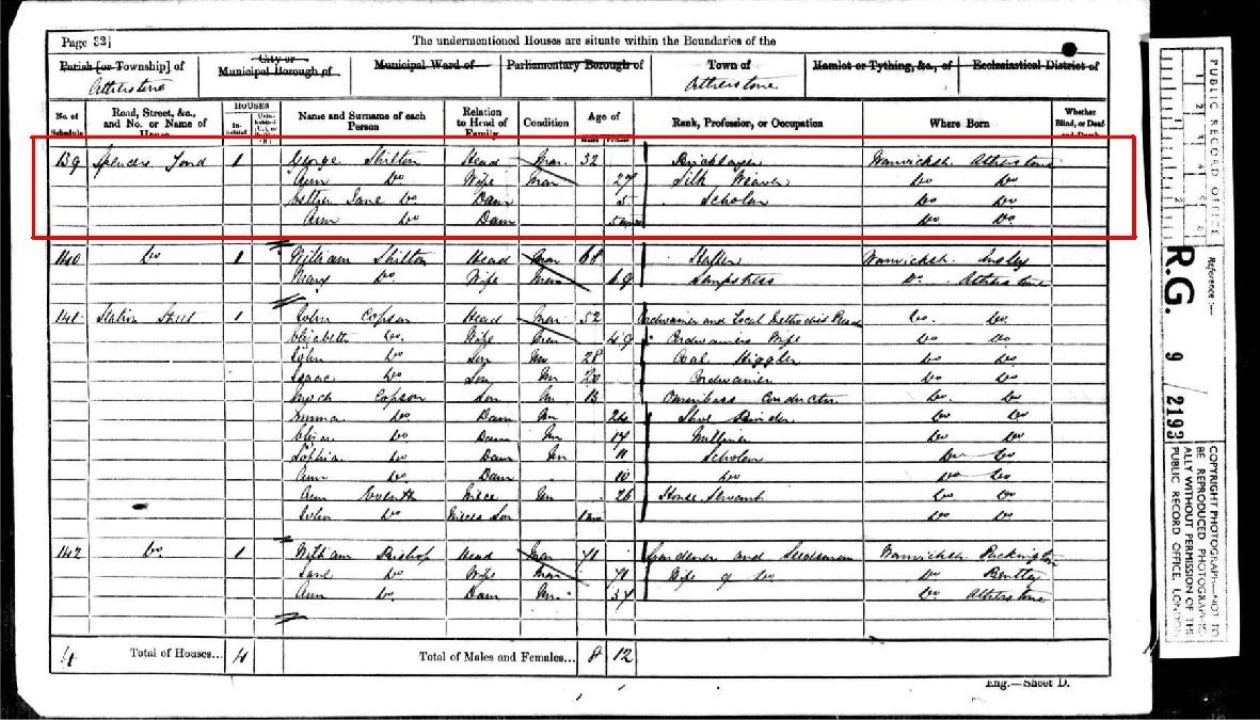 Page 32]
The undermentioned Houses are situate within the Boundaries of the
Parish [or Township] of
Atherstone
City or
Municipal Borough of
Municipal Ward of
Parliamentary Borough of
Town of
Atherstone
Hamlet or Tything, &c., of
Ecclesiastical District of
No. of Schedule Road, Street, &c., and No. or Name of House HOUSES Name and Surname of each Person Relation to Head of Family Condition Age of Rank, Profession, or Occupation Where Born Whether Blind, or Deaf-and-Dumb
139 Spencers Yond 1 George Shilton Head Mar 32 Bricklayer Warwicksh. Atherstone
Ann Do Wife Mar 27 Silk Weaver Do Do
Jane Do Daur 5 Scholar Do Do
Ann Do Daur 5 Do Do
140 Do 1 William Shilton Head Mar 68 Warwicksh. Ansley
Mary Do Wife Mar 69 Sempstress Do Atherstone
141 Station Street 1 John Copson Head Mar 52 Cordwainer and Local Methodist Do Do
Elizabeth Do Wife Mar 49 Cordwainers Wife Do Do
John Do Son Un 28 Coal Higgler Do Do
Isaac Do Son Un 20 Cordwainer Do Do
Copson Son Un 13 Omnibuss Conductor Do Do
Emma Do Daur Un 24 Shoe Binder Do Do
Eliza Do Daur Un 17 Milliner Do Do
Sophia Do Daur Un 11 Scholar Do Do
Ann Do Daur 10 Do Do Do
Ann Niece Un 26 House Servant Do Do
John Do Nieces Son 1 Do Do
142 Do 1 William Bishop Head Mar 71 Gardener and Seedsman Warwicksh. Packington
Jane Do Wife Mar 71 Wife of Do Do Bentley
Ann Do Daur Un 37 Do Atherstone
4 Total of Houses... 4 Total of Males and Females... 8 12
Eng.—Sheet D.
PUBLIC RECORD OFFICE
Reference :-
R.G. 9 / 2193
COPYRIGHT PHOTOGRAPH—NOT TO
BE REPRODUCED PHOTOGRAPHIC-
ALLY WITHOUT PERMISSION OF THE
PUBLIC RECORD OFFICE, LONDON